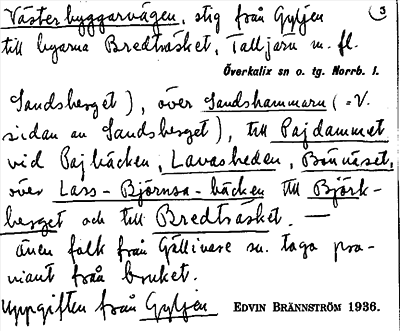 Västerbyggarvägen, stig från Gyljen
till byarna Bredträsket, Talljärn m. fl.
3
Överkalix sn o. tg. Norrb. l.
Sandsberget), över Sandshammarn (=V.
sidan av Sandsberget), till Pajdammet
vid Pajbäcken, Lavasheden, Bönnäset,
över Lass-Björnsa-bäcken till Björk-
berget och till Bredträsket. —
även folk från Gällivare sn. toga pro-
viant från bruket.
Uppgiften från Gyljen EDVIN BRÄNNSTRÖM 1936.